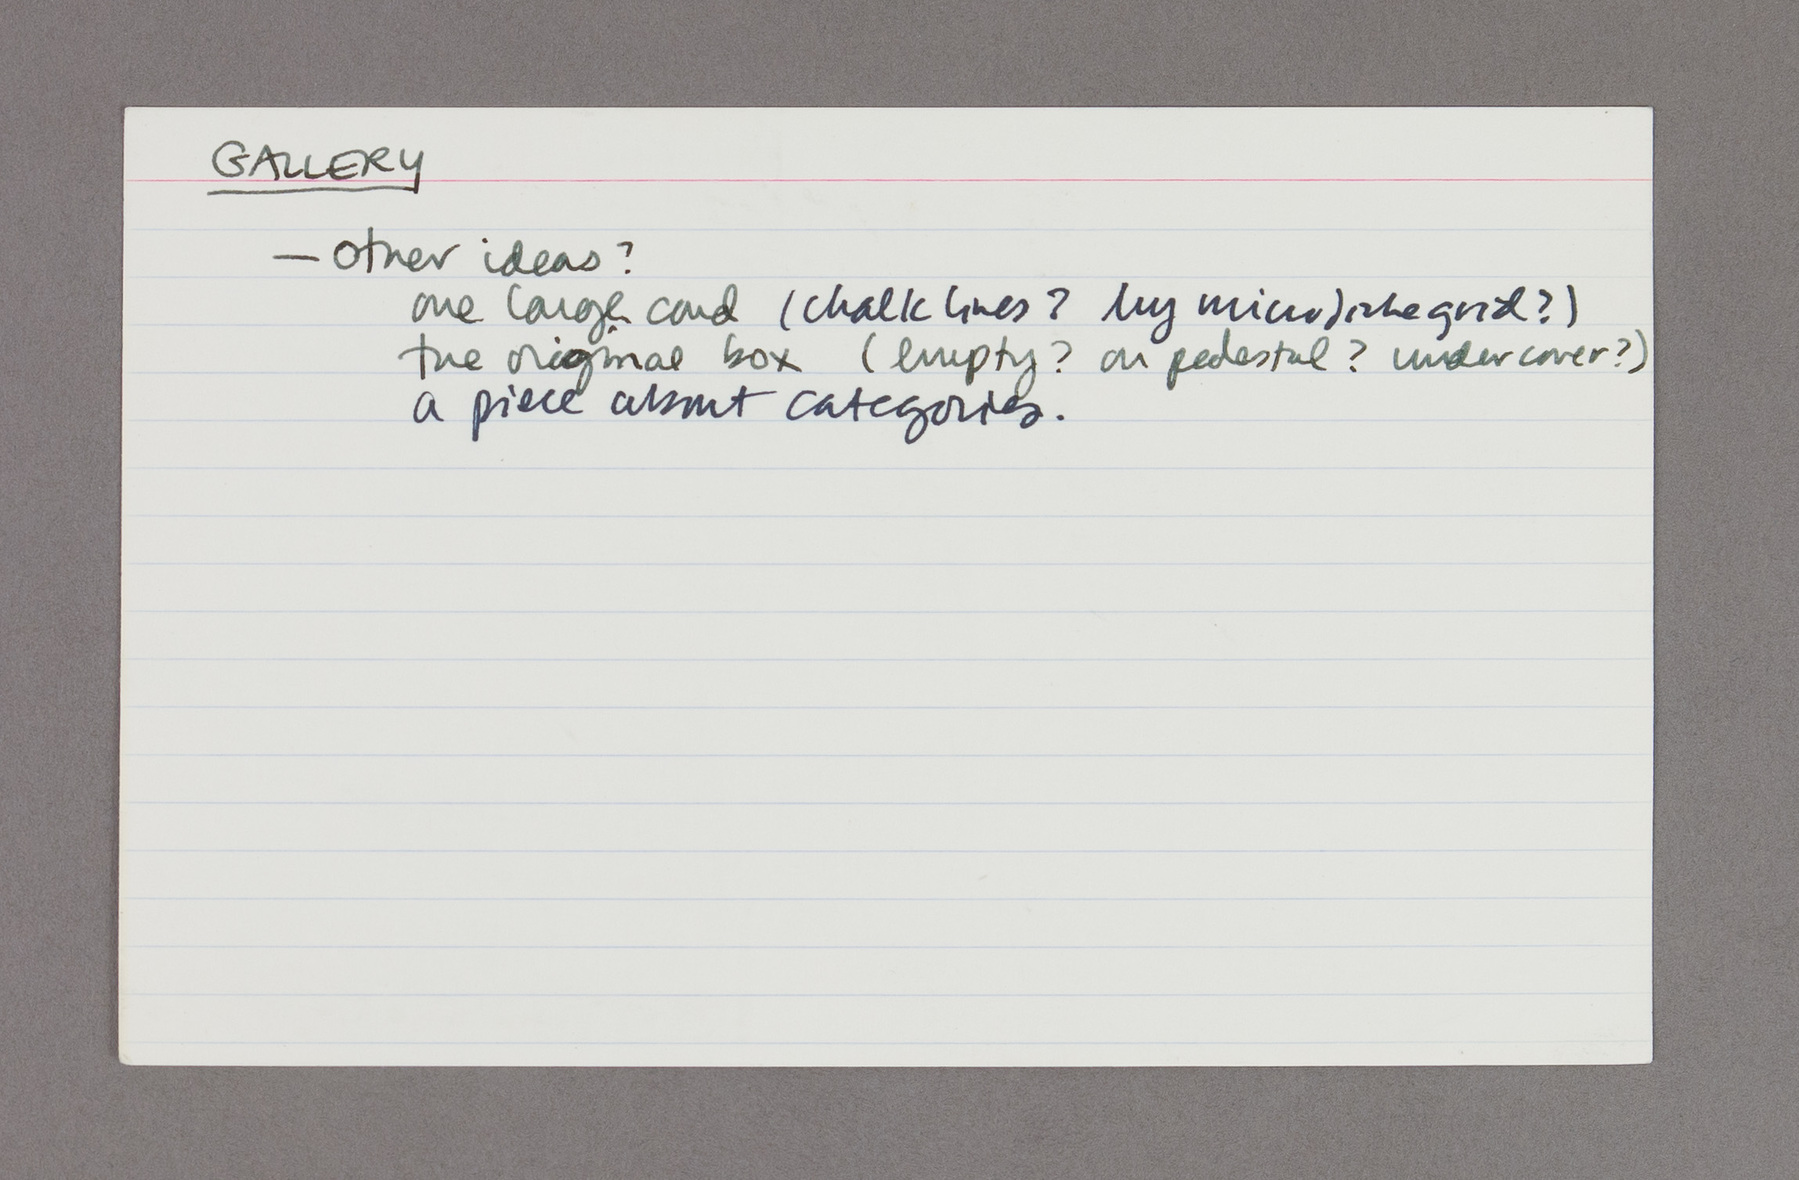 GALLERY
— other ideas?
one large card (chalk lines? my microfiche grid?)
the original box (empty? on pedestal? under cover?)
a piece about categories.